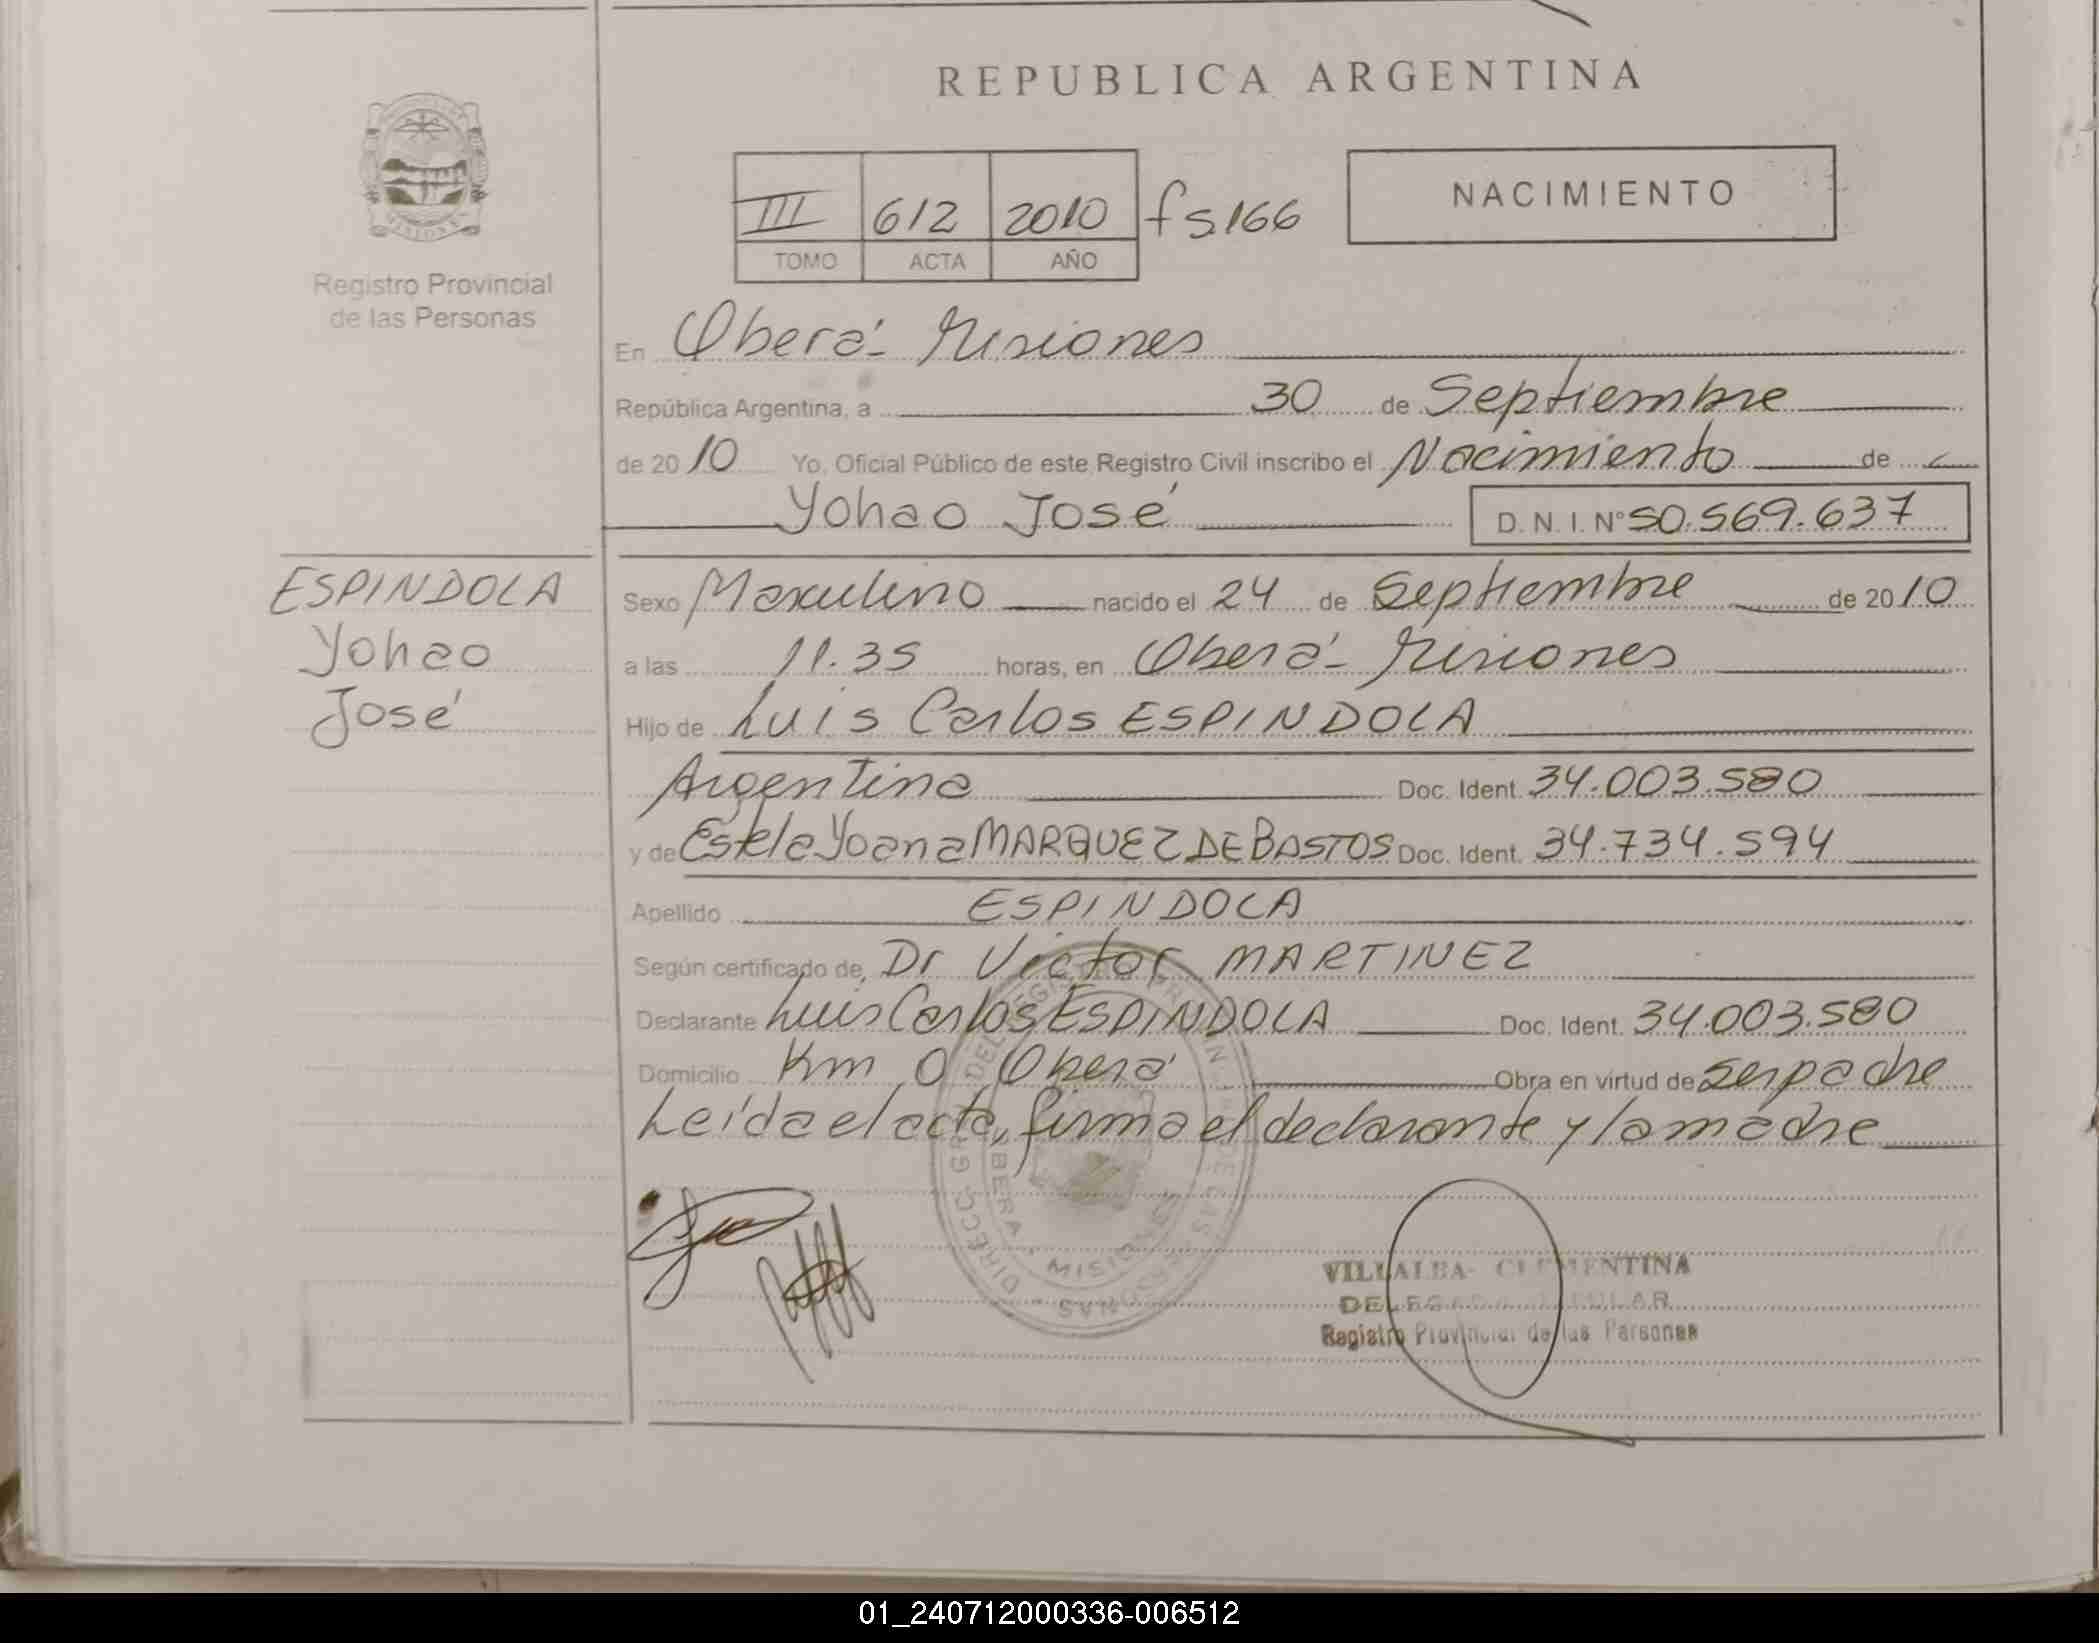 REPUBLICA ARGENTINA
III 612 2010 fs 166
TOMO ACTA AÑO
NACIMIENTO
Registro Provincial
de las Personas
En Oberá - Misiones
República Argentina, a 30 de Septiembre
de 2010 Yo, Oficial Público de este Registro Civil inscribo el Nacimiento de
Yohao José D. N. I. N° 50.569.637
ESPINDOLA
Yohao
José
Sexo Masculino nacido el 24 de Septiembre de 2010
a las 11.35 horas, en Oberá - Misiones
Hijo de Luis Carlos ESPINDOLA
Argentina Doc. Ident. 34.003.580
y de Estela Yoana MARQUEZ DE BASTOS Doc. Ident. 34.734.594
Apellido ESPINDOLA
Según certificado de Dr Victor MARTINEZ
Declarante Luis Carlos ESPINDOLA Doc. Ident. 34.003.580
Domicilio Km 0 Oberá Obra en virtud de ser padre
Leída el acta, firma el declarante y la madre
VILLALBA CLEMENTINA
DELEGADA TITULAR
Registro Provincial de las Personas
01_240712000336-006512